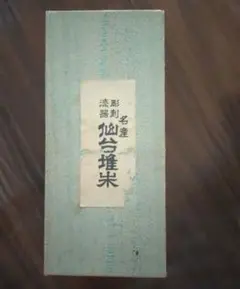 名産
彫刻
漆器
仙台堆朱